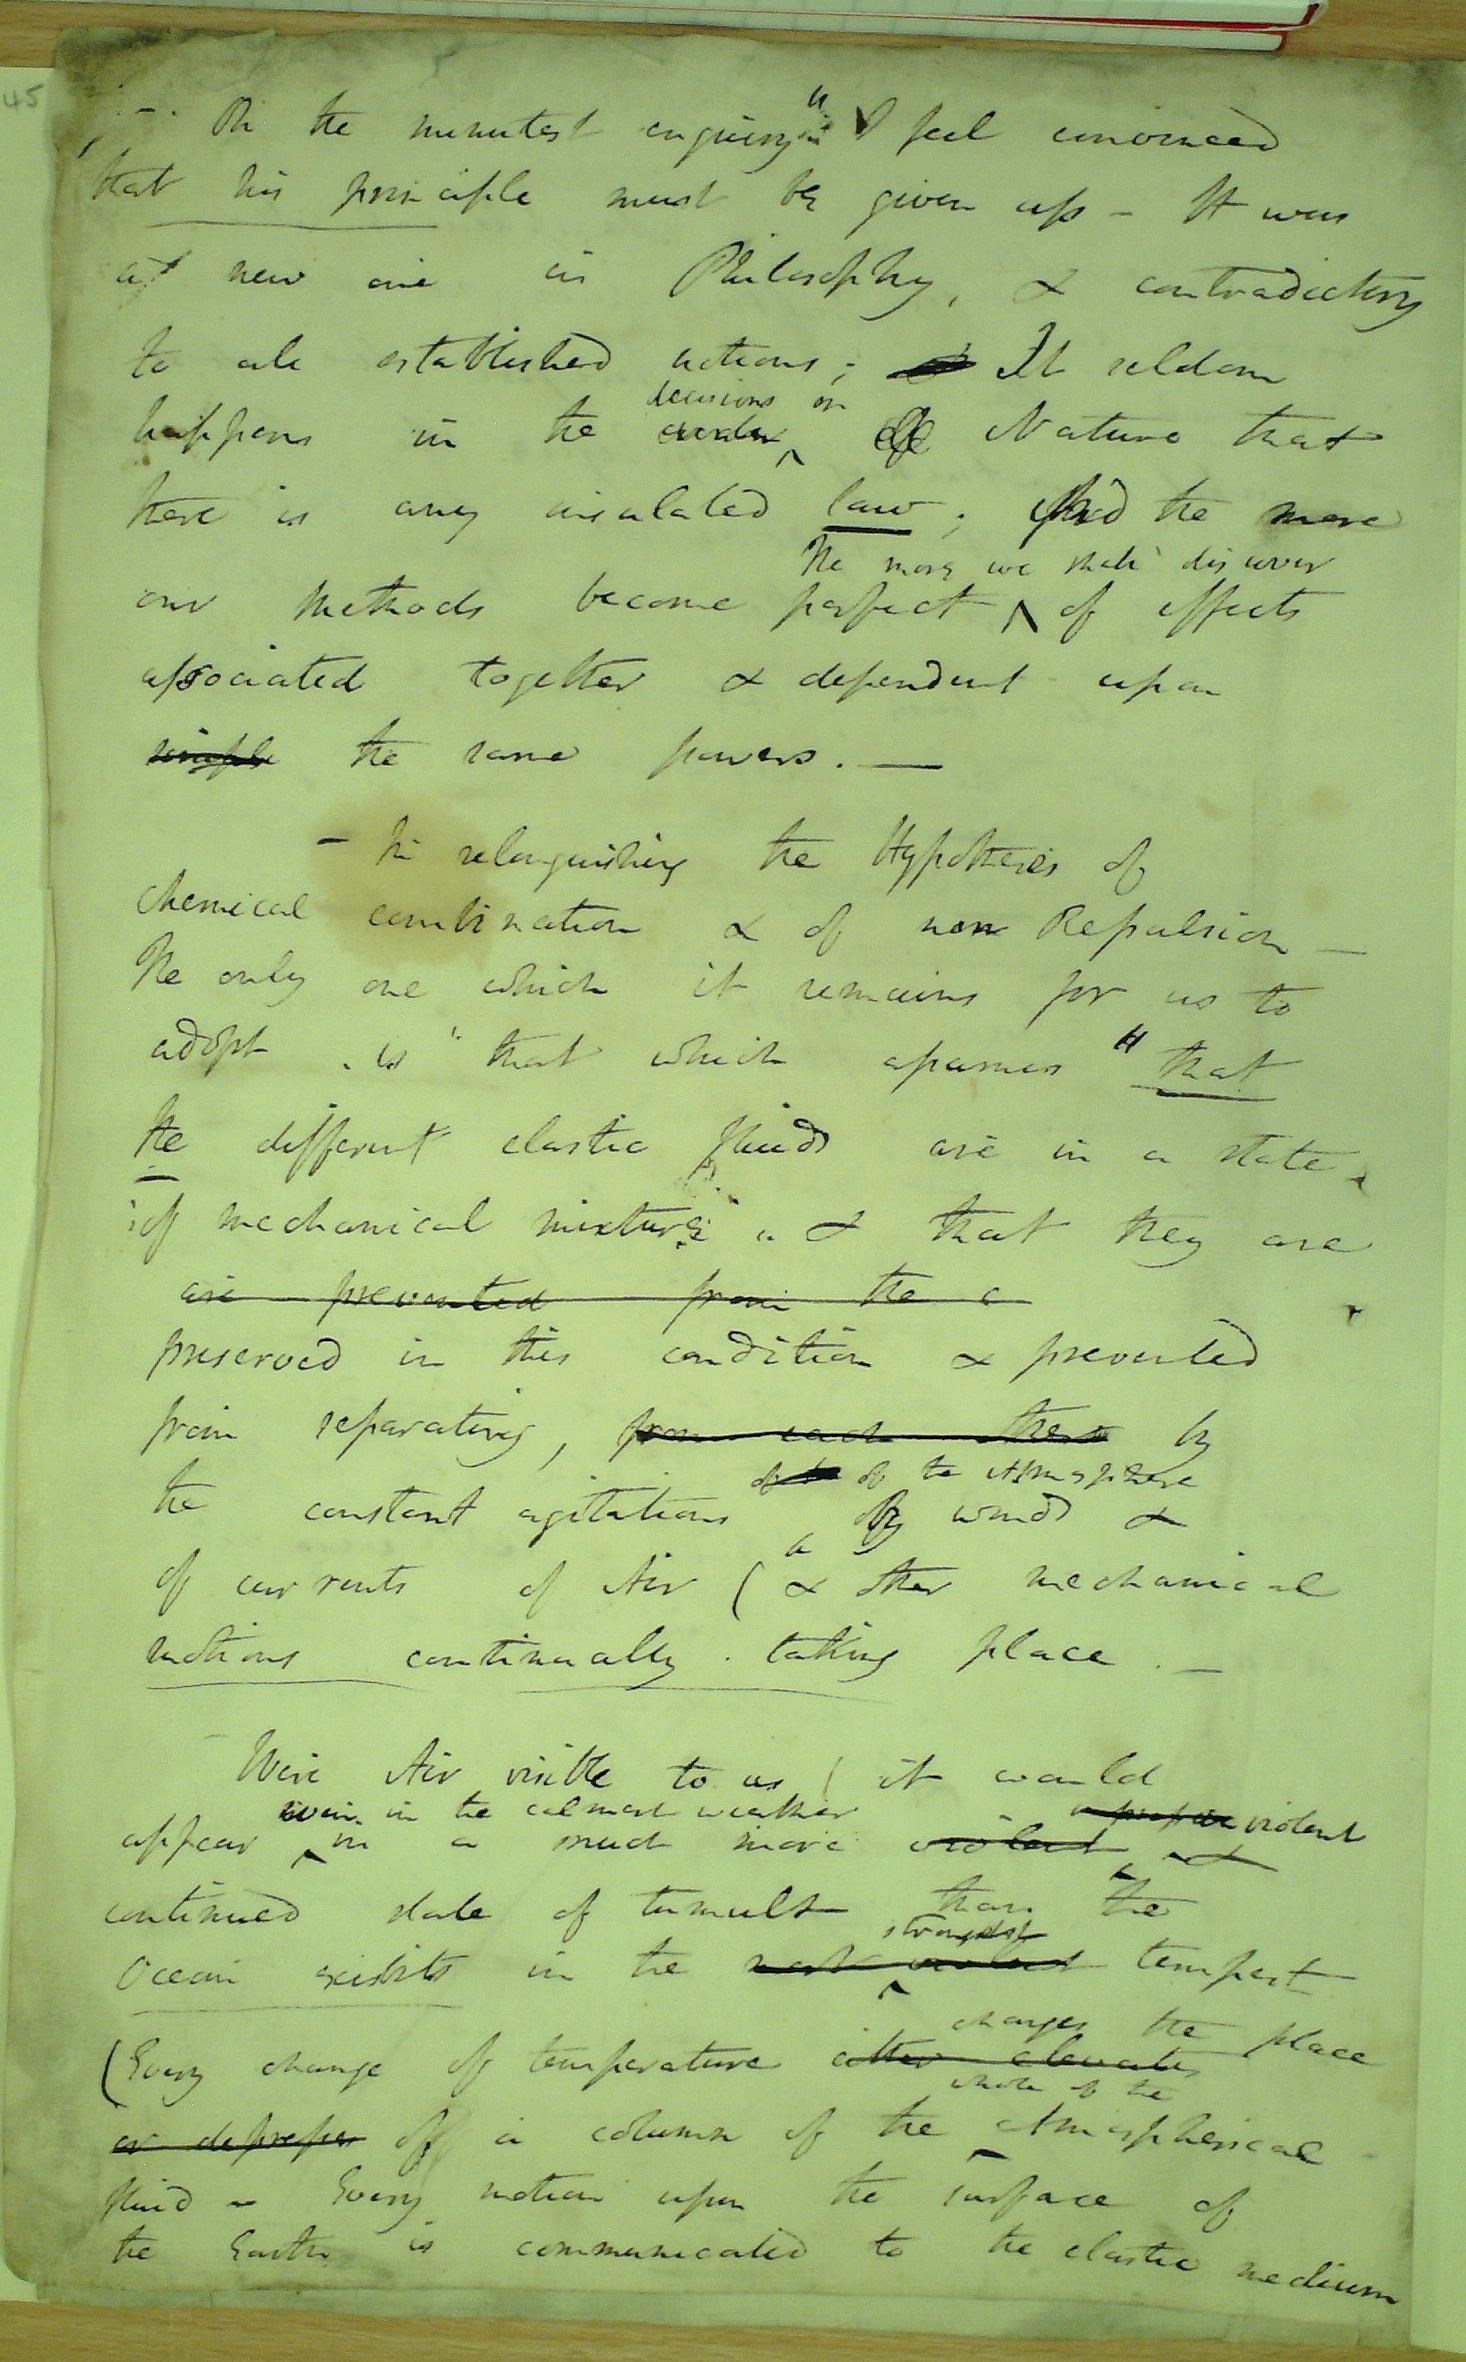 45
- On the minutest enquiry " I feel convinced
that his principle must be given up - It was
a new one in Philosophy, & contradictory
to all established notions; It seldom
decisions on
happens in the order ^ of Nature that
there is any insulated law; And the more
The more we shall discover
our methods become perfect ^ of effects
associated together & dependent upon
simple the same powers. —
- In relinquishing the Hypothesis of
chemical combination & of non Repulsion —
The only one which it remains for us to
adopt is " that which assumes " that
the different elastic fluids are in a state
of mechanical mixture; " & that they are
are prevented from the a
preserved in this condition & prevented
from separating, from each other by
of the of the Atmosphere
the constant agitations ^ By winds &
of currents of Air ( & other mechanical
motions continually taking place. —
Were Air visible to us ( it would
even in the calmest weather violent
appear ^ in a much more violent &
continued state of tumult than the
strongest
Ocean exhibits in the most violent ^ tempest
changes the place
(Every change of temperature either elevates
whole of the
or depresses of a column of the ^ Atmospherical
fluid - Every motion upon the surface of
the Earth is communicated to the elastic medium